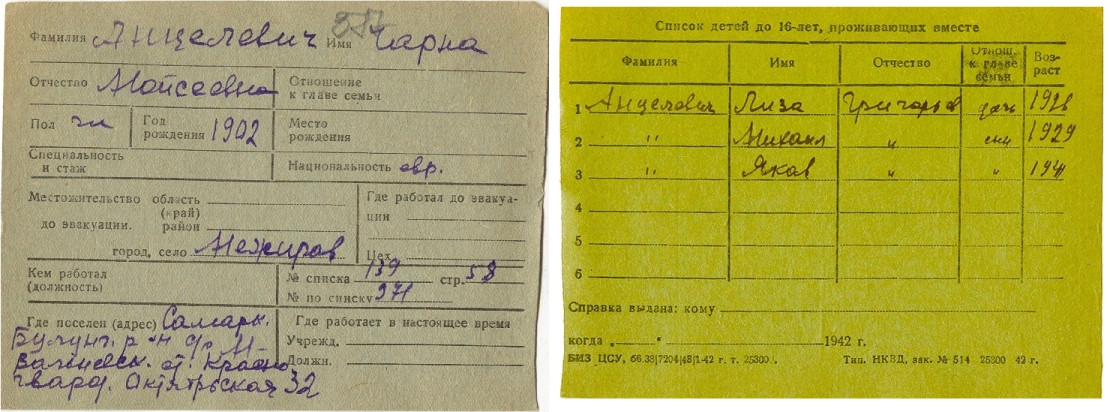 Фамилия Анцелевич Имя Чарна
317
Отчество Мойсеевна Отношение к главе семьи
Пол ж Год рождения 1902 Место рождения
Специальность и стаж Национальность евр.
Местожительство область
(край)
до эвакуации. район
город, село Межиров
Где работал до эвакуа-
ции
Цех
Кем работал
(должность)
№ списка 139 стр. 58
№ по списку 971
Где поселен (адрес) Самарк.
Булунг. р-н
ст. Красно
гвард. Октятрьская 32
Где работает в настоящее время
Учрежд.
Должн.
Список детей до 16-лет, проживающих вместе
Фамилия Имя Отчество Отнош. к главе семьи Воз-раст
1 Анцелович Лиза Григорьев дочь 1926
2 " Михаил " сын 1929
3 " Яков " " 1941
4
5
6
Справка выдана: кому
когда „ “ 1942 г.
БИЗ ЦСУ, 66.38|7204|48|1-42 г. т. 25300. Тип. НКВД, зак. № 514 25300 42 г.